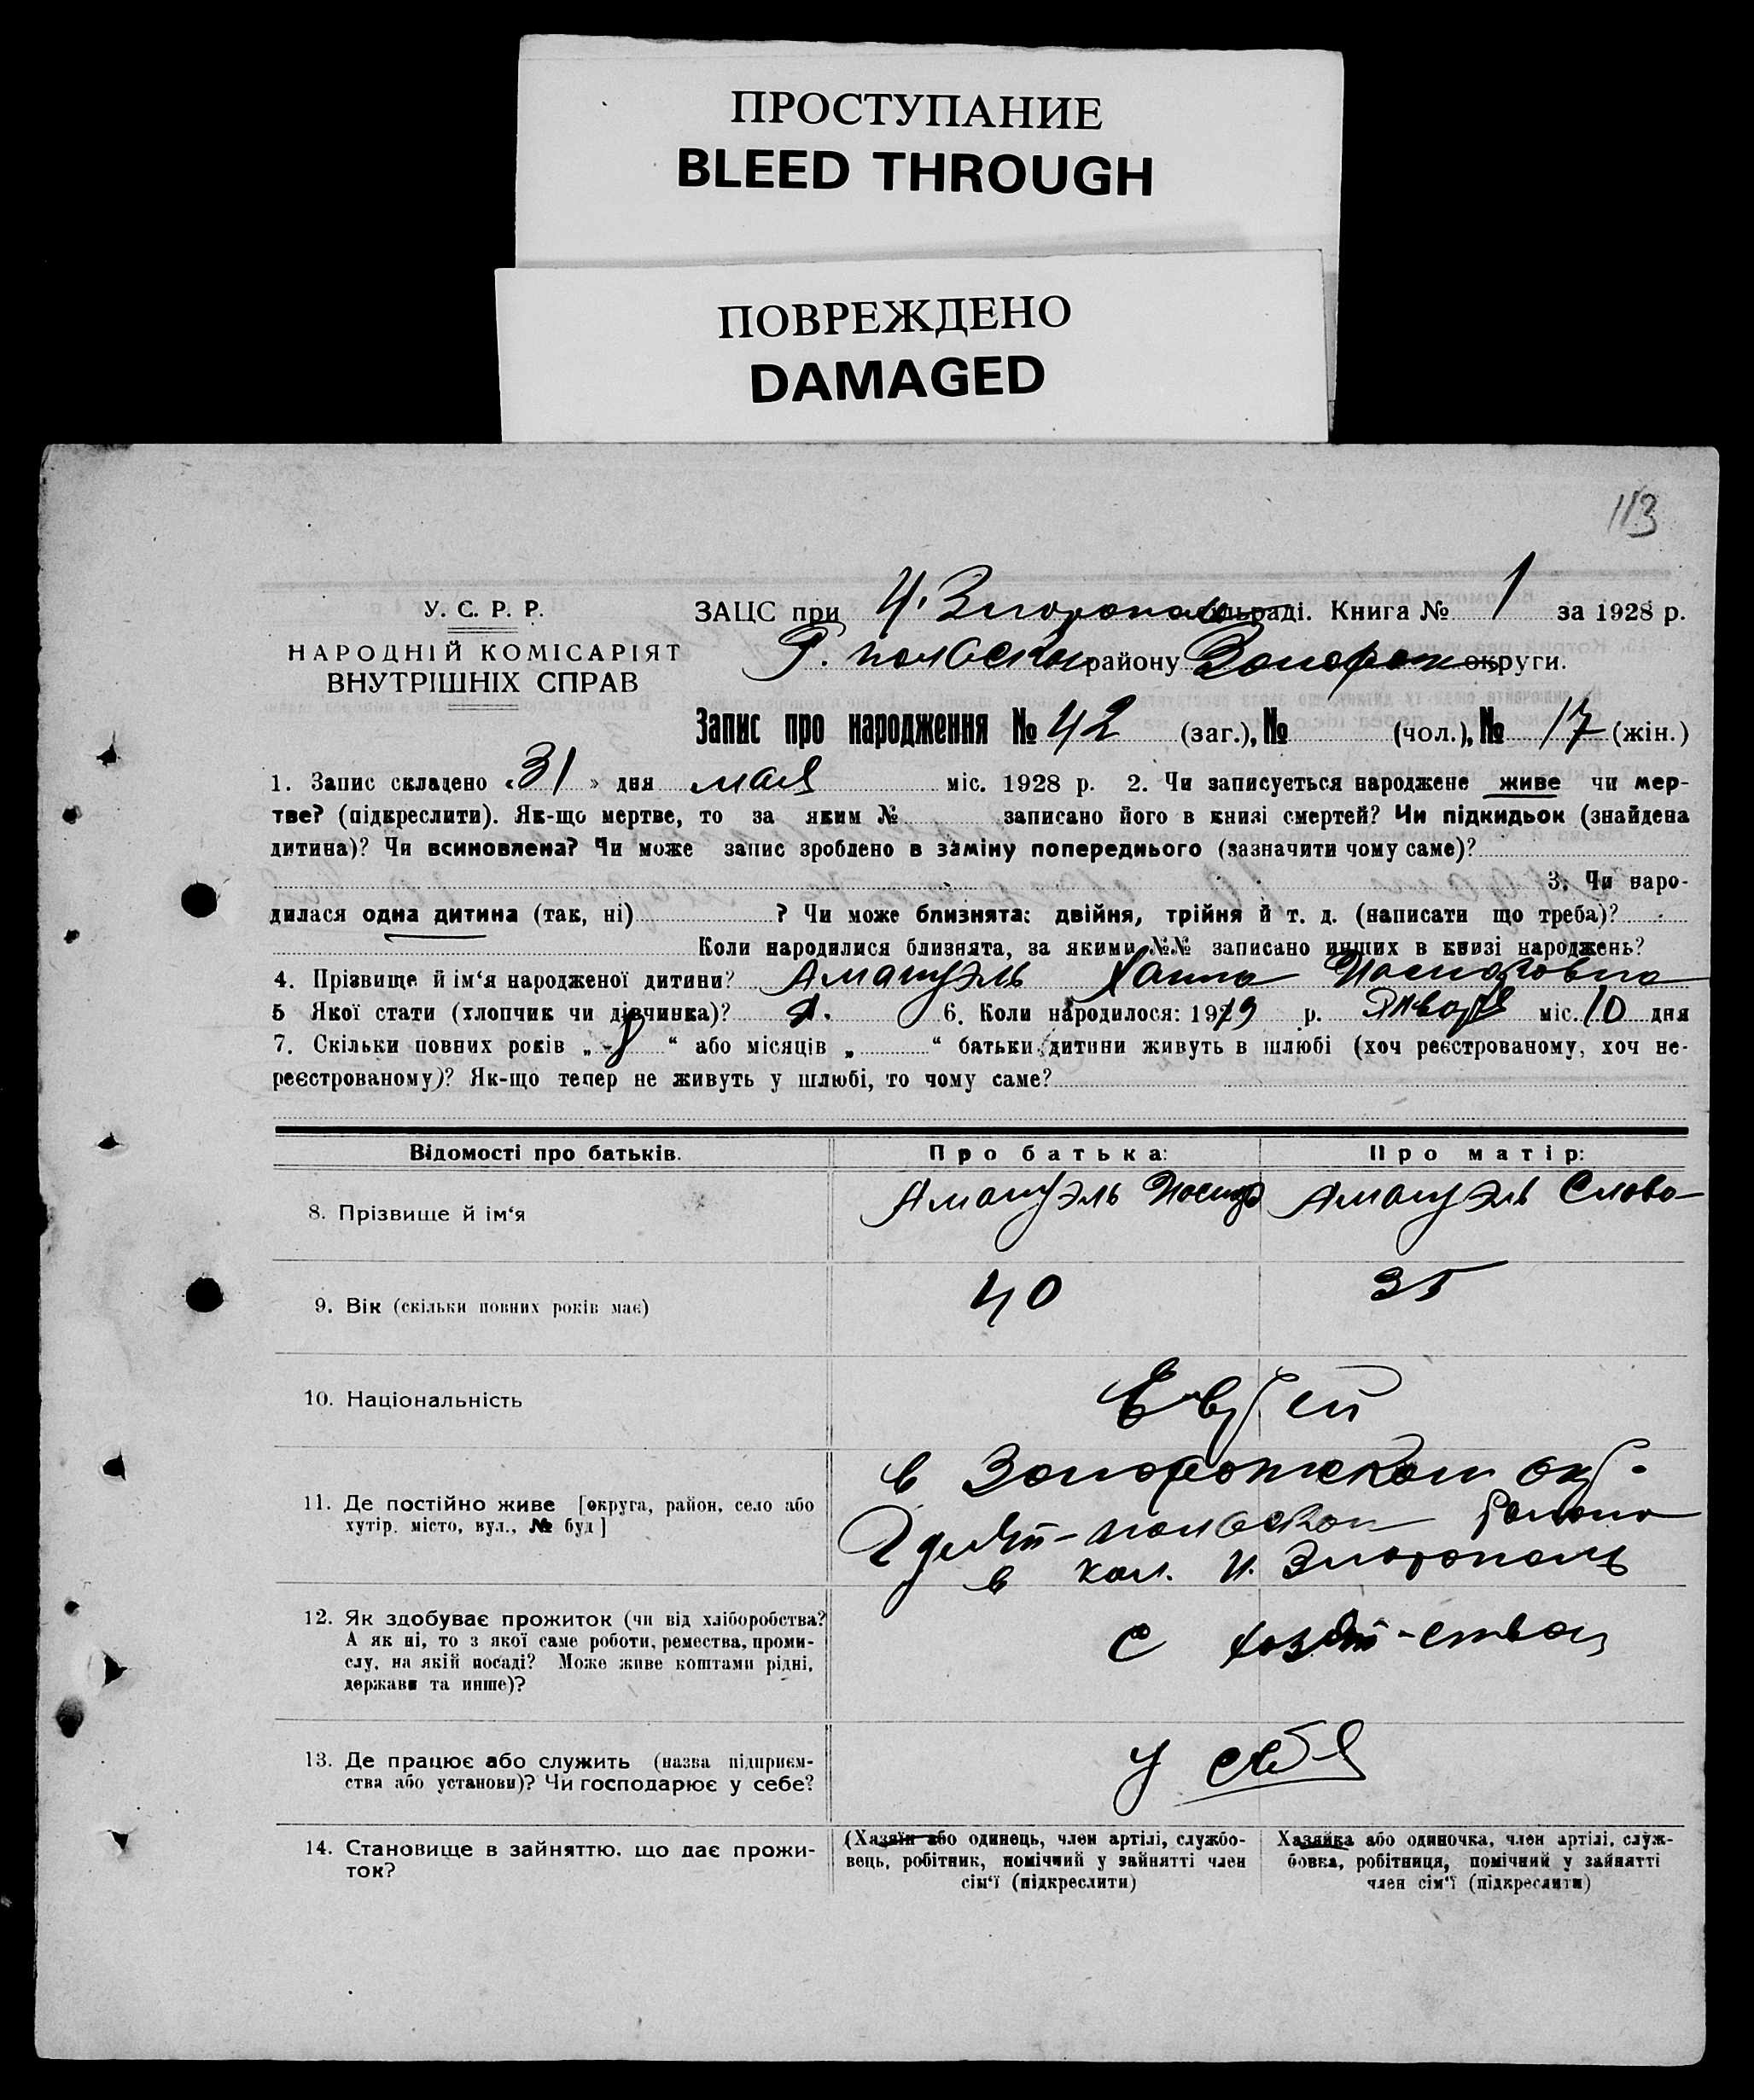 ПРОСТУПАНИЕ
BLEED THROUGH
ПОВРЕЖДЕНО
DAMAGED
113
У. С. Р. Р.
НАРОДНІЙ КОМІСАРІЯТ
ВНУТРІШНІХ СПРАВ
ЗАЦС при И. Златополь сільраді. Книга № 1 за 1928 р.
району округи.
Запис про народження № 42 (заг.), № (чол.), № 17 (жін.)
1. Запис складено «31» дня мая міс. 1928 р. 2. Чи записується народжене живе чи мер-
тве? (підкреслити). Як-що мертве, то за яким № записано його в книзі смертей? Чи підкидьок (знайдена
дитина)? Чи всиновлена? Чи може запис зроблено в заміну попереднього (зазначити чому саме)?
3. Чи наро-
дилася одна дитина (так, ні) ? Чи може близнята: двійня, трійня й т. д. (написати що треба)?
Коли народилися близнята, за якими №№ записано инших в книзі народжень?
4. Прізвище й ім‘я народженої дитини? Амануэль Ханна Иосифовна
5 Якої стати (хлопчик чи дівчинка)? д. 6. Коли народилося: 1919 р. Января міс. 10 дня
7. Скільки повних років „ “ або місяців „ “ батьки дитини живуть в шлюбі (хоч реєстрованому, хоч не-
реєстрованому)? Як-що тепер не живуть у шлюбі, то чому саме?
Відомості про батьків. Про батька: Про матір:
8. Прізвище й ім‘я Амануэль Иосиф Амануэль Слова
9. Вік (скільки повних років має) 40 35
10. Національність Еврей
11. Де постійно живе [округа, район, село або
хутір, місто, вул., № буд]
в Запорожском окр.
районе
в кол. И. Златополь
12. Як здобуває прожиток (чи від хліборобства?
А як ні, то з якої саме роботи, ремества, проми-
слу, на якій посаді? Може живе коштами рідні,
держави та инше)?
с хозяй-ства
13. Де працює або служить (назва підприєм-
ства або установи)? Чи господарює у себе?
у себя
14. Становище в зайняттю, що дає прожи-
ток?
(Хазяїн або одинець, член артілі, службо-
вець, робітник, помічний у зайнятті член
сім‘ї (підкреслити)
Хазяйка або одиночка, член артілі, служ-
бовка, робітниця, помічний у зайнятті
член сім‘ї (підкреслити)